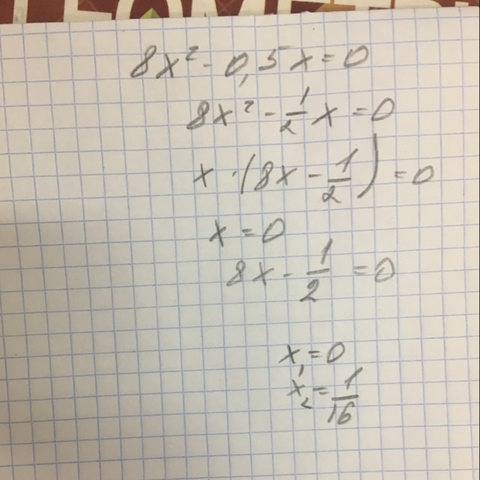 8x² - 0,5x = 0
8x² - 1/2 x = 0
x · (8x - 1/2) = 0
x = 0
8x - 1/2 = 0
x₁ = 0
x₂ = 1/16